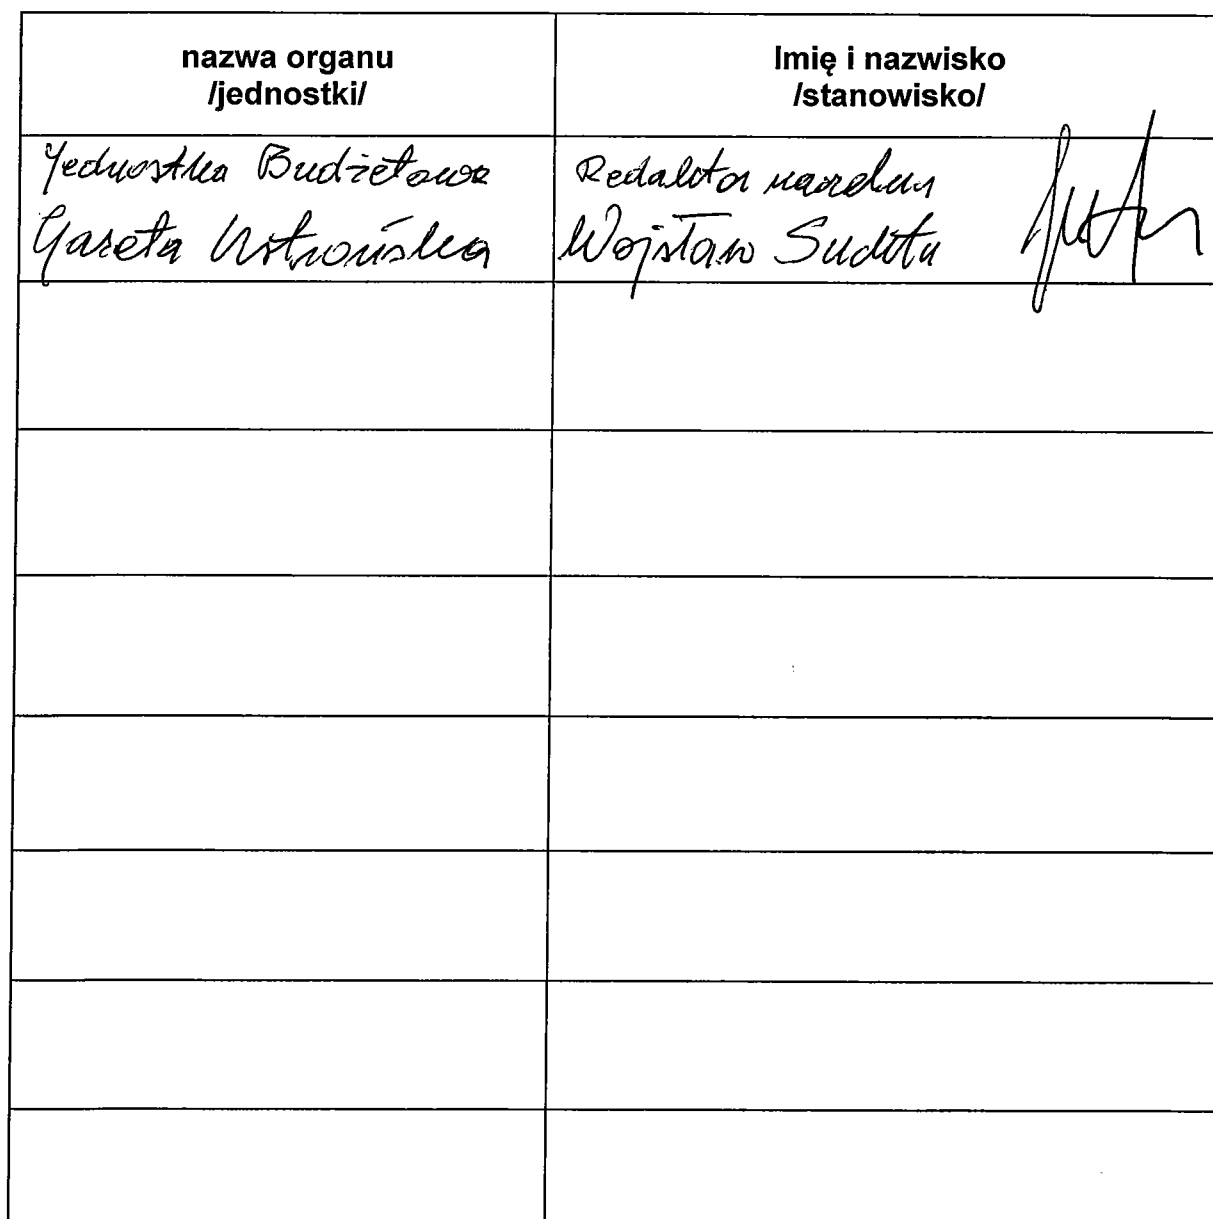 nazwa organu
/jednostki/
Imię i nazwisko
/stanowisko/
Jednostka Budżetowa
Gazeta Ustrońska
Redaktor naczelny
Wojsław Suchta